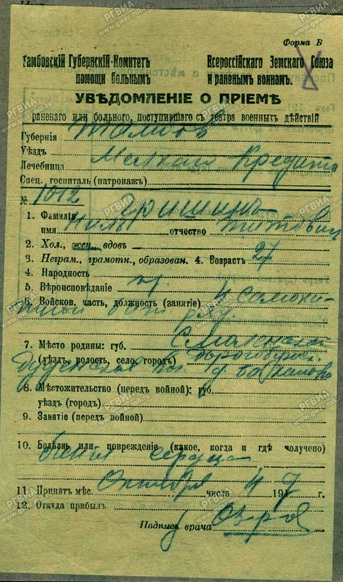 Форма В
Тамбовскій Губернскій Комитетъ
помощи больнымъ
Всероссійскаго Земскаго Союза
и раненымъ воинамъ.
УВѢДОМЛЕНІЕ О ПРІЕМѢ
раненаго или больного, поступившаго съ театра военныхъ дѣйствій
Губернія Тамбов
Уѣздъ
Лечебница Мелкаго Кредита
Спец. госпиталь (патронажъ)
№ 1062
1. Фамилія Гришинъ
имя отчество Титович
2. Хол., жен., вдовъ
3. Неграм., грамотн., образован. 4. Возрастъ 27
4. Народность
5. Вѣроисповѣданіе пр.
6. Войсков. часть, должность (занятіе)
ряд.
7. Мѣсто родины: губ. Смоленская
(уѣздъ, волость, село, городъ) Дорогобуж.
8. Мѣстожительство (передъ войной): губ.
уѣздъ (городъ)
9. Занятіе (передъ войной)
10. Болѣзнь или поврежденіе (какое, когда и гдѣ получено)
сердца
11 Принятъ мѣс. Октября числа 4 191 7 г.
12. Откуда прибылъ
Подпись врача
РГВИА